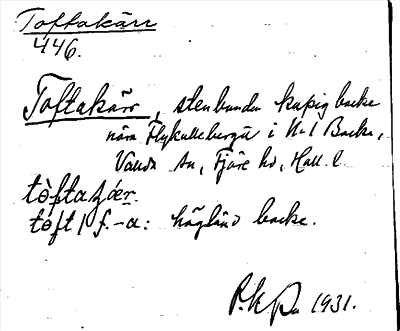 Toftakärr
446.
Toftakärr, stenbunden kupig backe
nära Flykullebergū i N:o 1 Backa,
Vallda sn, Fjäre hd, Hall. l.
tòftaçær.
tòft/ f. -a: högländ backe.
1931.